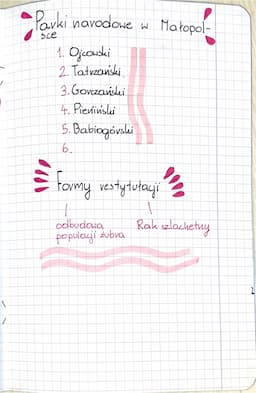 Parki narodowe w Małopol-
sce
1. Ojcowski
2. Tatrzański
3. Gorczański
4. Pieniński
5. Babiogórski
6.
Formy restytutacji
odbudowa Rak szlachetny
populacji żubra